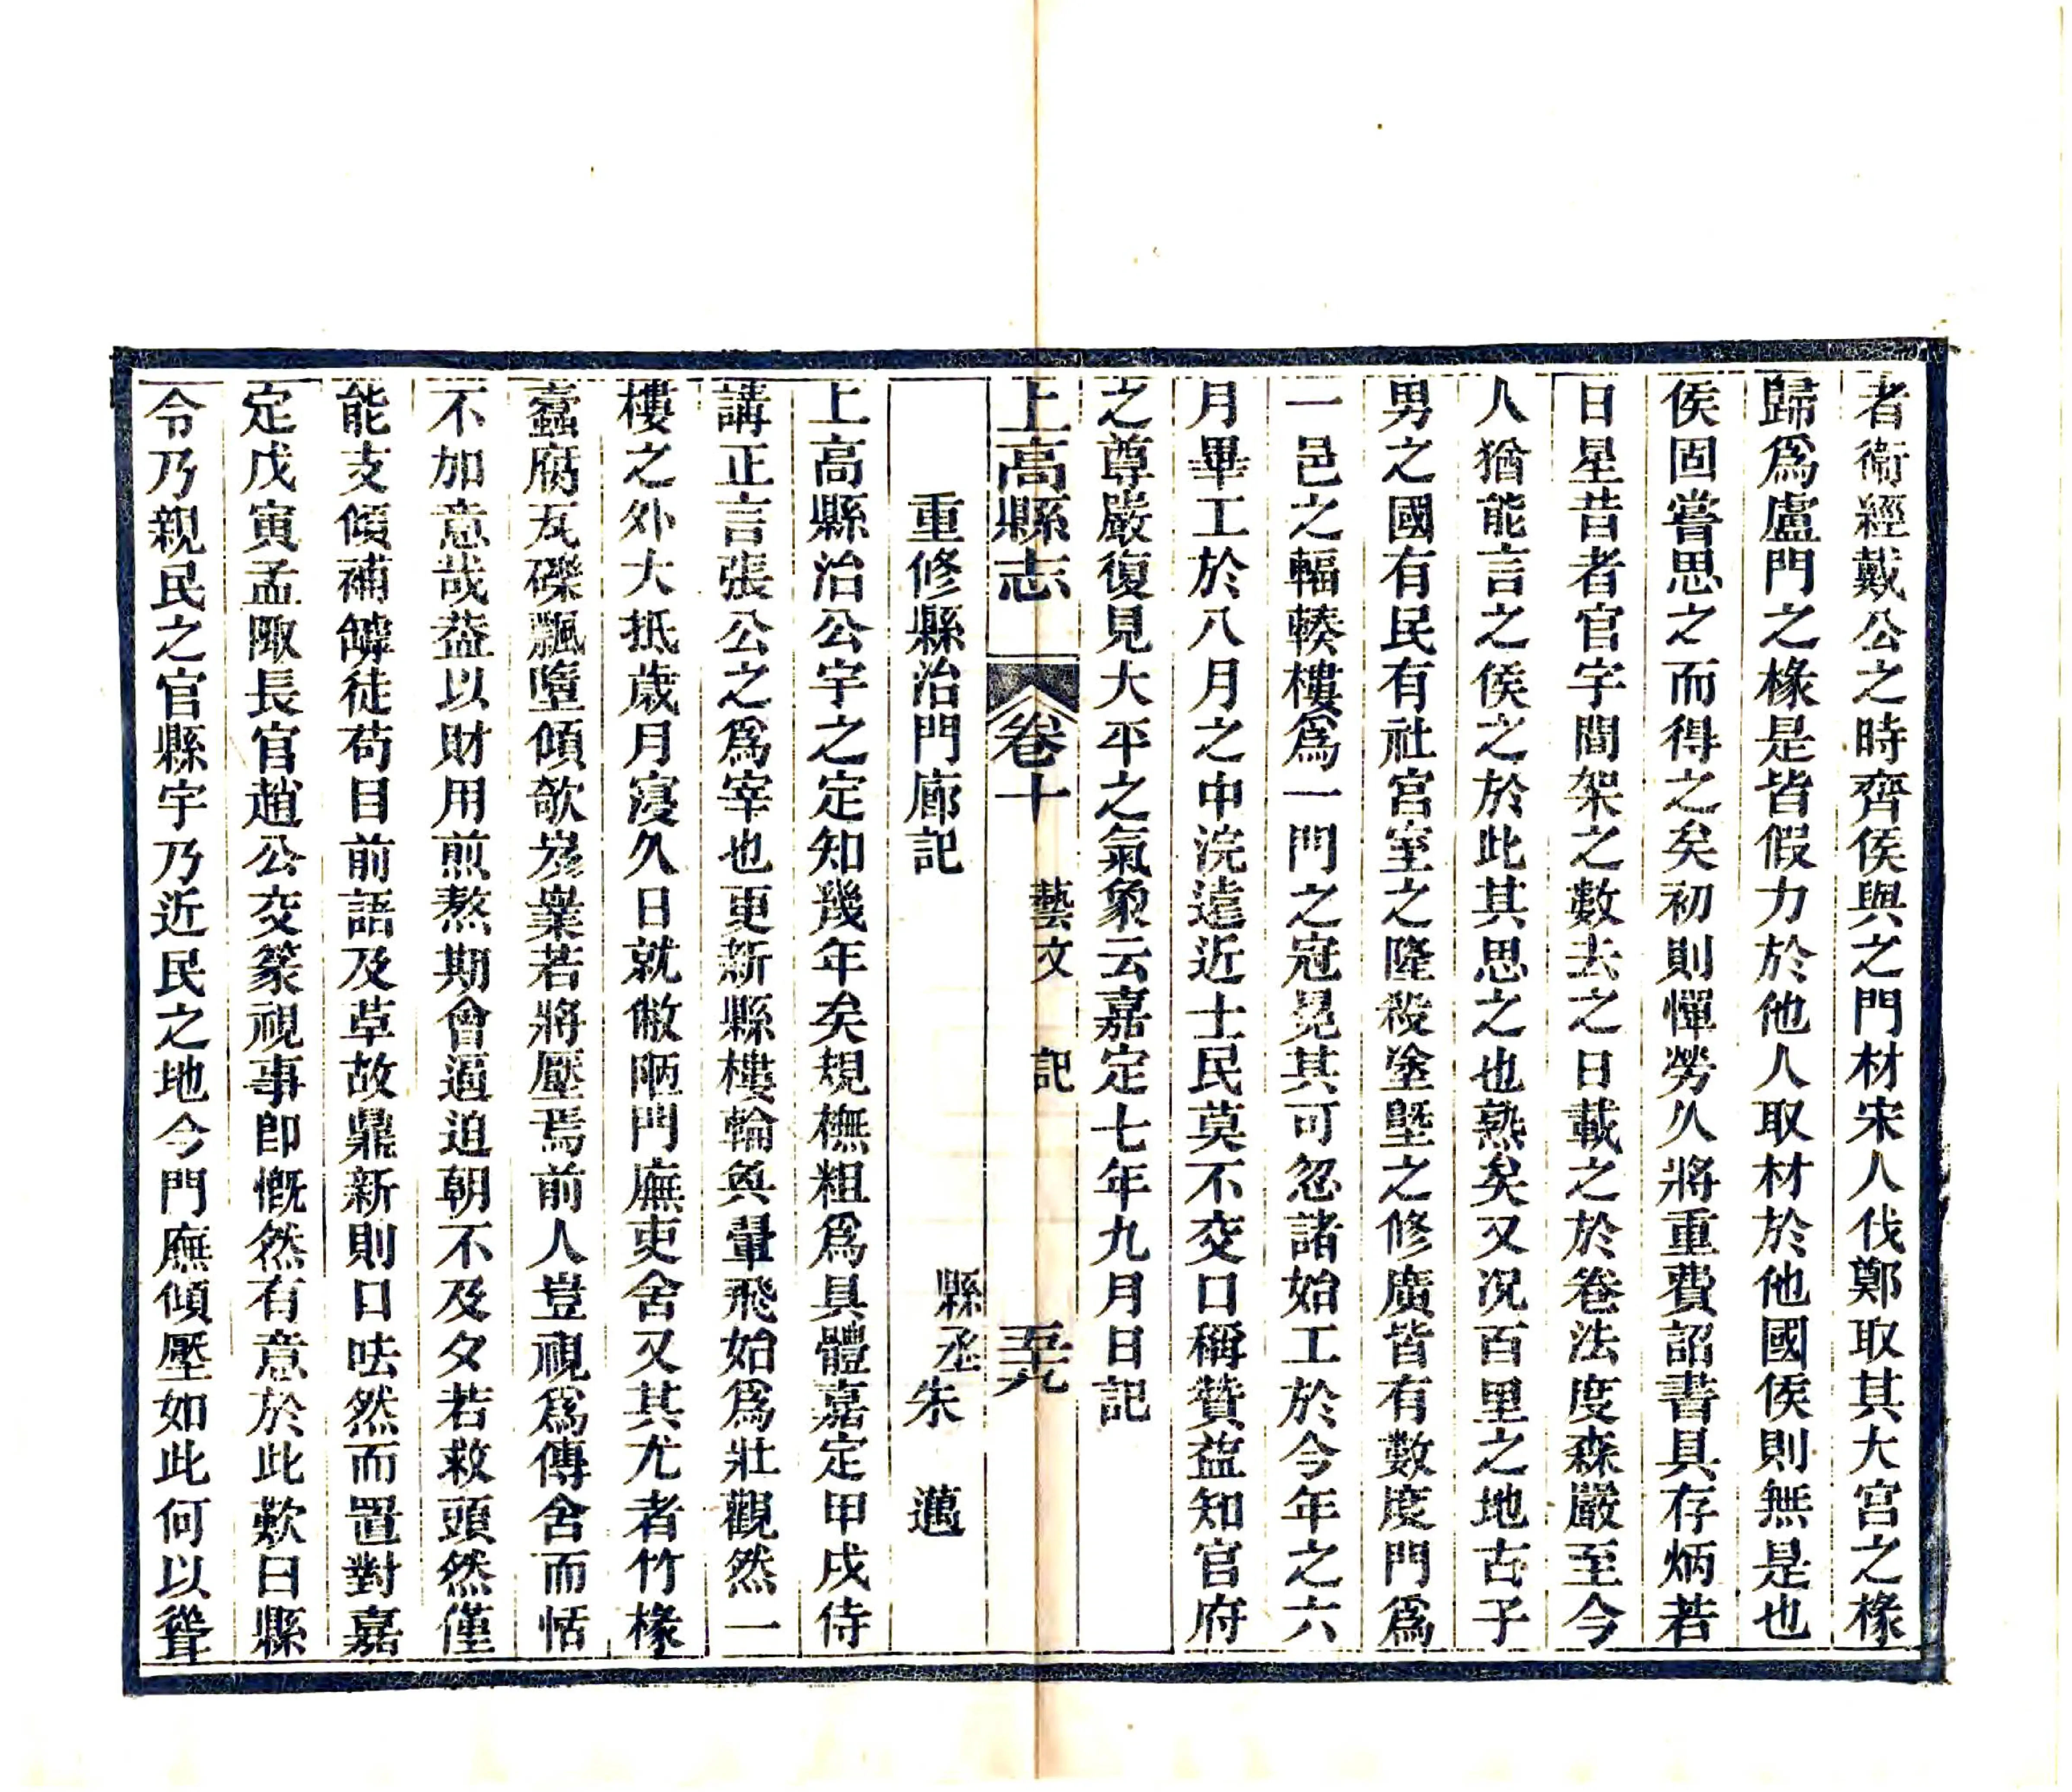 者衞經戴公之時齊侯與之門材宋人伐鄭取其大宫之椽
歸爲盧門之椽是皆假力於他人取材於他國侯則無是也
侯固嘗思之而得之矣初則憚勞久將重費詔書具存炳若
日星昔者官宇間架之數去之日載之於卷法度森嚴至今
人猶能言之侯之於此其思之也熟矣又况百里之地古子
男之國有民有社宫室之隆殺塗塈之修廣皆有數度門爲
一邑之輻輳樓爲一門之冠冕其可忽諸始工於今年之六
月畢工於八月之中浣遠近士民莫不交口稱贊益知官府
之尊嚴復見大平之氣象云嘉定七年九月日記
上高縣志 卷十 藝文 記 五九
重修縣治門廊記 縣丞朱 邁
上高縣治公宇之定知幾年矣規橅粗爲具體嘉定甲戌侍
講正言張公之爲宰也更新縣樓輪奐翬飛始爲壯觀然一
樓之外大抵歲月寖久日就敝陋門廡吏舍又其尤者竹椽
蠹腐瓦礫飄墮傾欹岌嶪若將壓焉前人豈視爲傳舍而恬
不加意哉葢以財用煎熬期會逼迫朝不及夕若救頭然僅
能支傾補罅徒苟目前語及革故鼎新則口呿然而置對嘉
定戊寅孟陬長官趙公交篆視事卽慨然有意於此歎曰縣
令乃親民之官縣宇乃近民之地今門廡傾壓如此何以聳